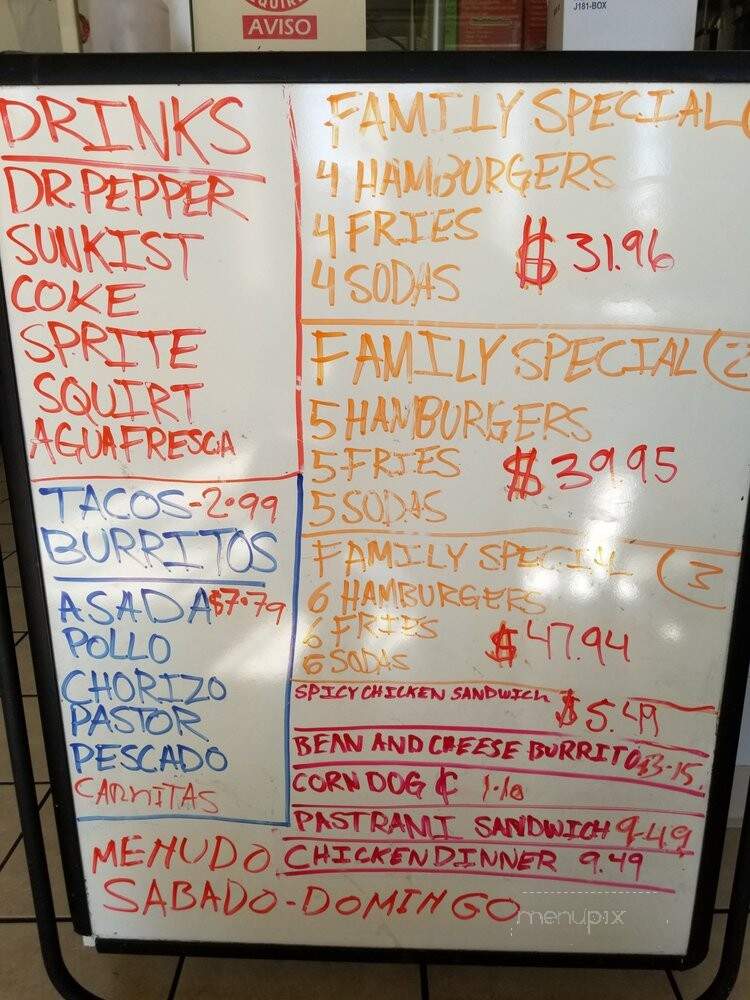 AVISO
J181-BOX
DRINKS
DR.PEPPER
SUNKIST
COKE
SPRITE
SQUIRT
AGUA FRESCA
TACOS-2.99
BURRITOS
ASADA $7.79
POLLO
CHORIZO
PASTOR
PESCADO
CARNITAS
MENUDO
SABADO-DOMINGO
FAMILY SPECIAL
4 HAMBURGERS
4 FRIES
4 SODAS
$31.96
FAMILY SPECIAL (2
5 HAMBURGERS
5 FRIES
5 SODAS
$39.95
FAMILY SPECIAL (3
6 HAMBURGERS
6 FRIES
6 SODAS
$47.94
SPICY CHICKEN SANDWICH $5.49
BEAN AND CHEESE BURRITO $3.15
CORN DOG ¢ 1.10
PASTRAMI SANDWICH 9.49
CHICKEN DINNER 9.49
menupix